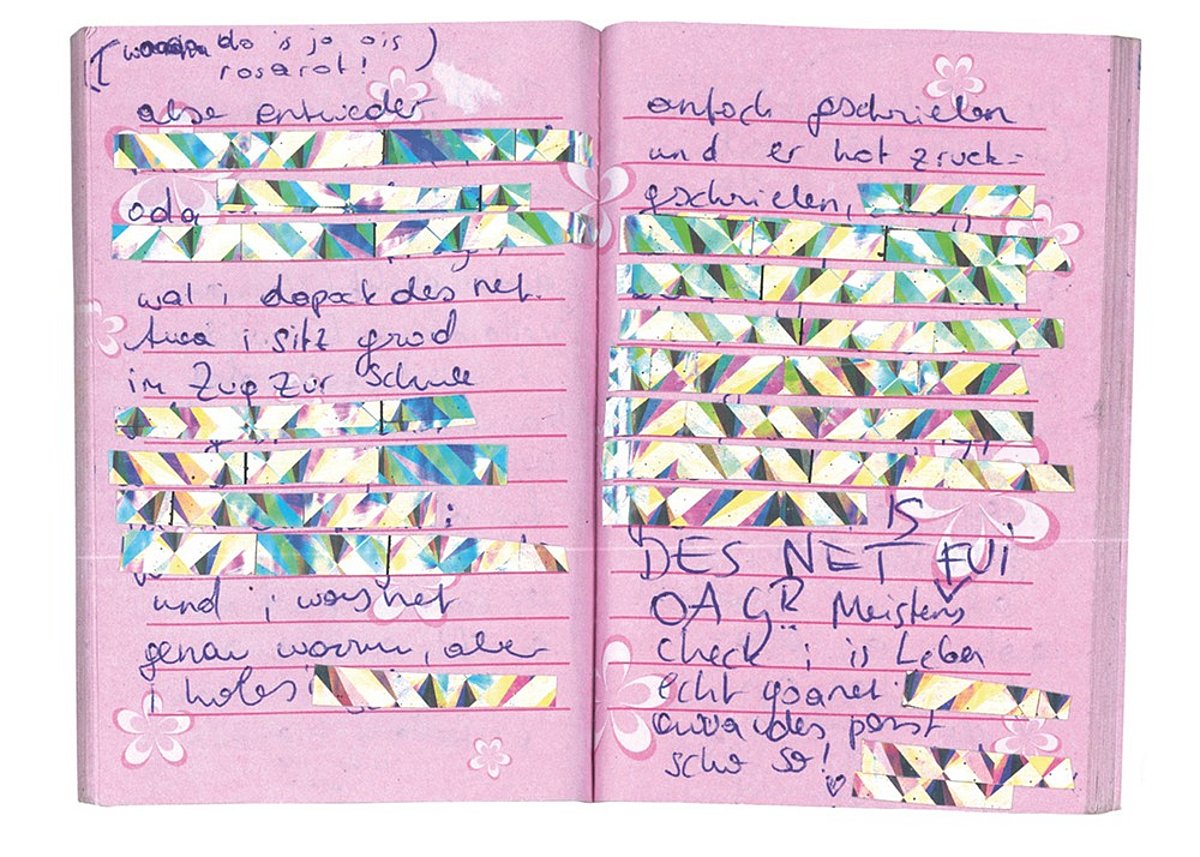 do is jo ois
rosarot!
also entweder
oda
wal i dapack des net.
Auca i sitz grod
im Zug zur Schule
und i ways net
genau warum, aber
i holes
anfoch gschrieben
und er hot zruck-
gschrieben,
IS
DES NET FUI
OAG? Meistens
check i is Leben
echt goanet
owa des passt
scho so!